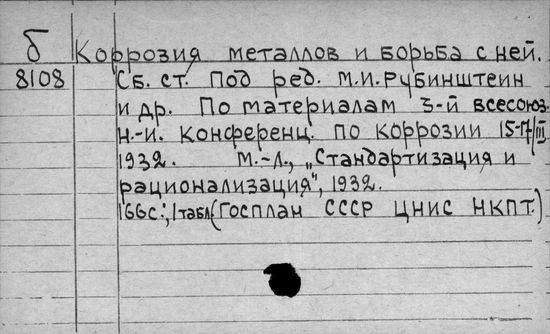 б Коррозия металлов и борьба с ней.
8108 Сб. ст. Под ред. М.И. Рубинштейн
и др. По материалам 3-й всесоюз.
н.-и. конференц. по коррозии 15-17/III
1932. М.-Л., „Стандартизация и
рационализация", 1932.
166с.; 1 табл (Госплан СССР ЦНИС НКПТ.)